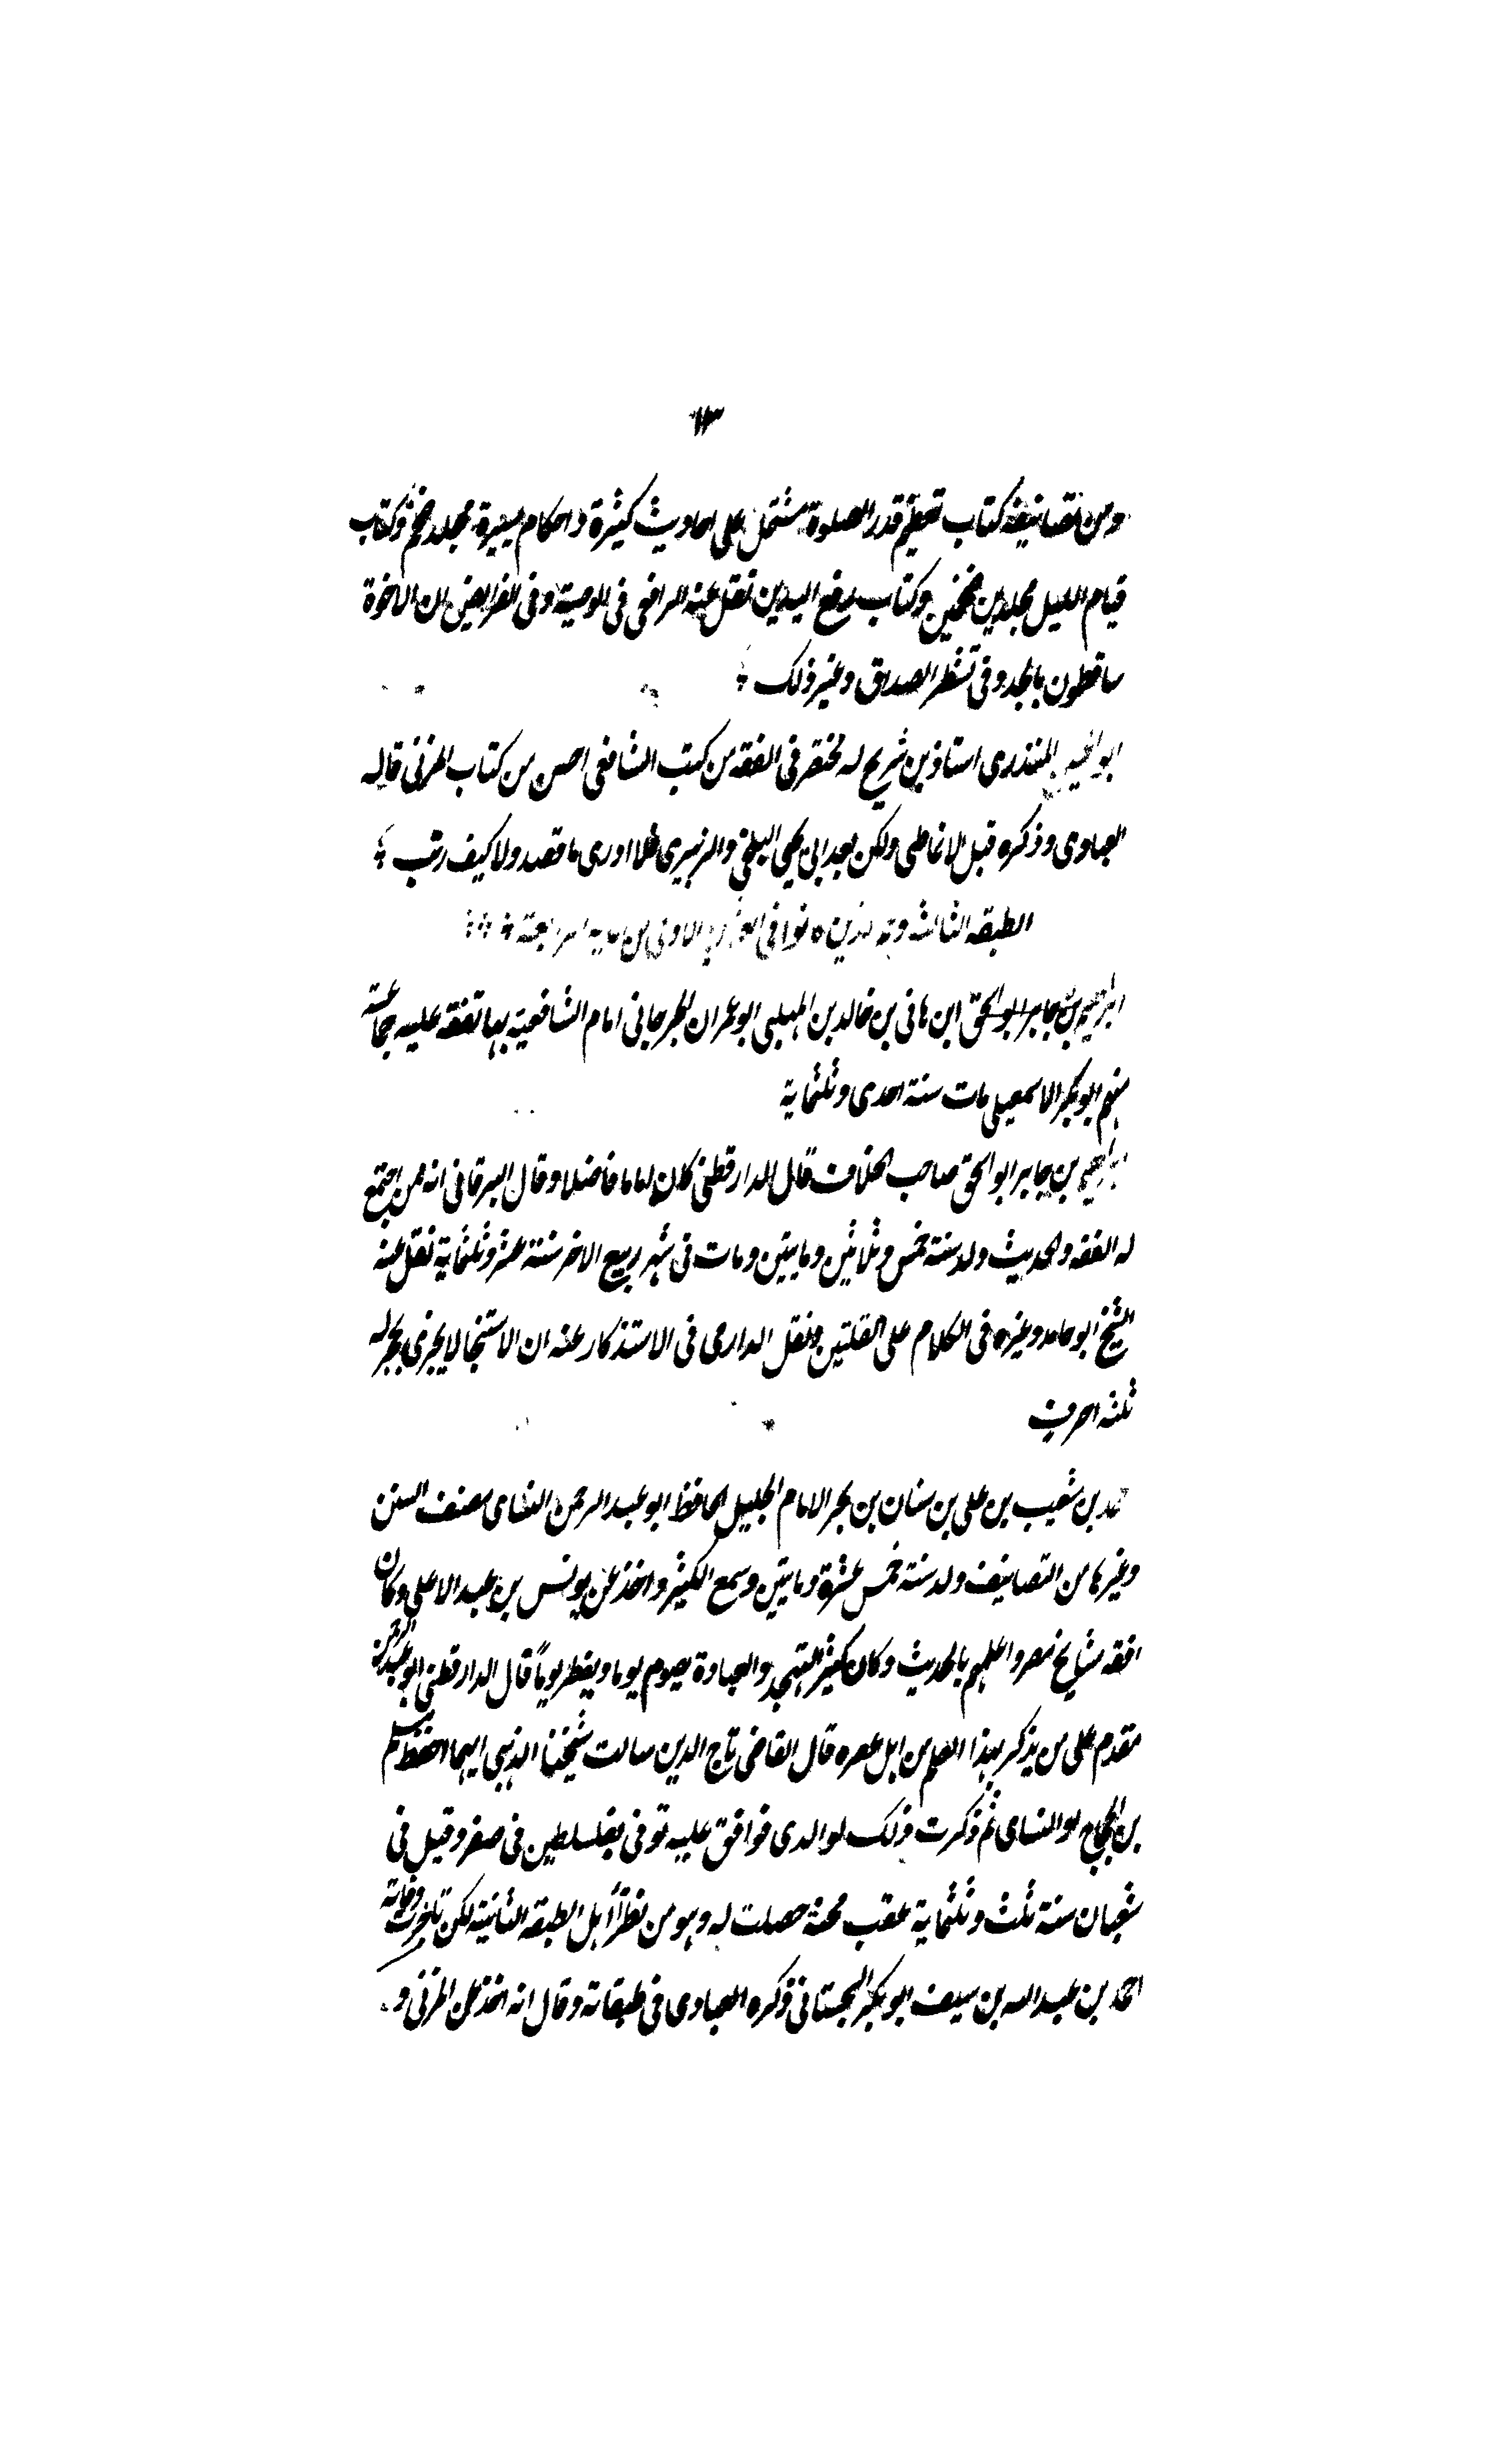 ١٣
ومن تصانيفه كتاب تعظيم قدر الصلوة مشتمل على احاديث كثيرة و احكام يسيرة مجلد ضخم وكتاب
قيام الليل مجلدين ضخمين وكتاب رفع اليدين نقل عنه الرافعى فى الوصية وفى الفرايض ان الاخوة
ساقطون بالجد وفى تشطر الصداق وغير ذلك
ابو المنذرى استاذ بن شريح له مختصر فى الفقه من كتب الشافعى احسن من كتاب المزنى قاله
العبادى وذكره قبل الانماطى ولكن بعد ابى يحيى البلخى والزبيرى فلا ادرى ما قصد ولا كيف رتب
الطبقه الثالث وهم الذين كانوا فى العشرين الاولى من المايه الرابعة
ابراهيم بن جابر ابو اسحق ابن هانى بن خالد بن المهلبى ابو عمران الجرجانى امام الشافعية بها تفقه عليه جماعة
منهم ابو بكر الاسمعيلى مات سنة احدى وثلثماية
ابراهيم بن جابر ابو اسحق صاحب الخلاف قال الدارقطنى كان اماما فاضلا وقال البرقانى انه ممن اجتمع
له الفقه والحديث ولد سنة خمس وثلاثين ومايتين ومات فى شهر ربيع الاخر سنة عشر وثلثماية نقل عنه
الشيخ ابو حامد وغيره فى الكلام على القلتين ونقل الدارمى فى الاستذكار عنه ان الاستنجا لا يجزى بحجر له
ثلثه احرف
احمد بن شعيب بن على بن سنان بن بحر الامام الجليل الحافظ ابو عبد الرحمن النساى مصنف السنن
وغيرها من التصانيف ولد سنة خمس عشرة ومايتين وسمع الكثير واخذ عن يونس بن عبد الاعلى وكان
افقه مشايخ مصر واعلمهم بالحديث وكان كثير التهجد والعبادة يصوم يوما ويفطر يوماً قال الدارقطنى ابو عبد الرحمن
مقدم على من يذكر بهذا العلم من اهل عصره قال القاضى تاج الدين سالت شيخنا الذهبى ايهما احفظ مسلم
بن الحجاج او النساى ثم ذكرت ذلك لوالدى فوافق عليه توفى بفلسطين فى صفر وقيل فى
شعبان سنة ثلث وثلثماية عقب محنة حصلت له وهو من نظرأ اهل الطبقه الثانية لكن تاخرت وفاته
احمد بن عبد الله بن سيف ابو بكر السجستانى ذكره العبادى فى طبقاته وقال انه اخذ عن المزنى و